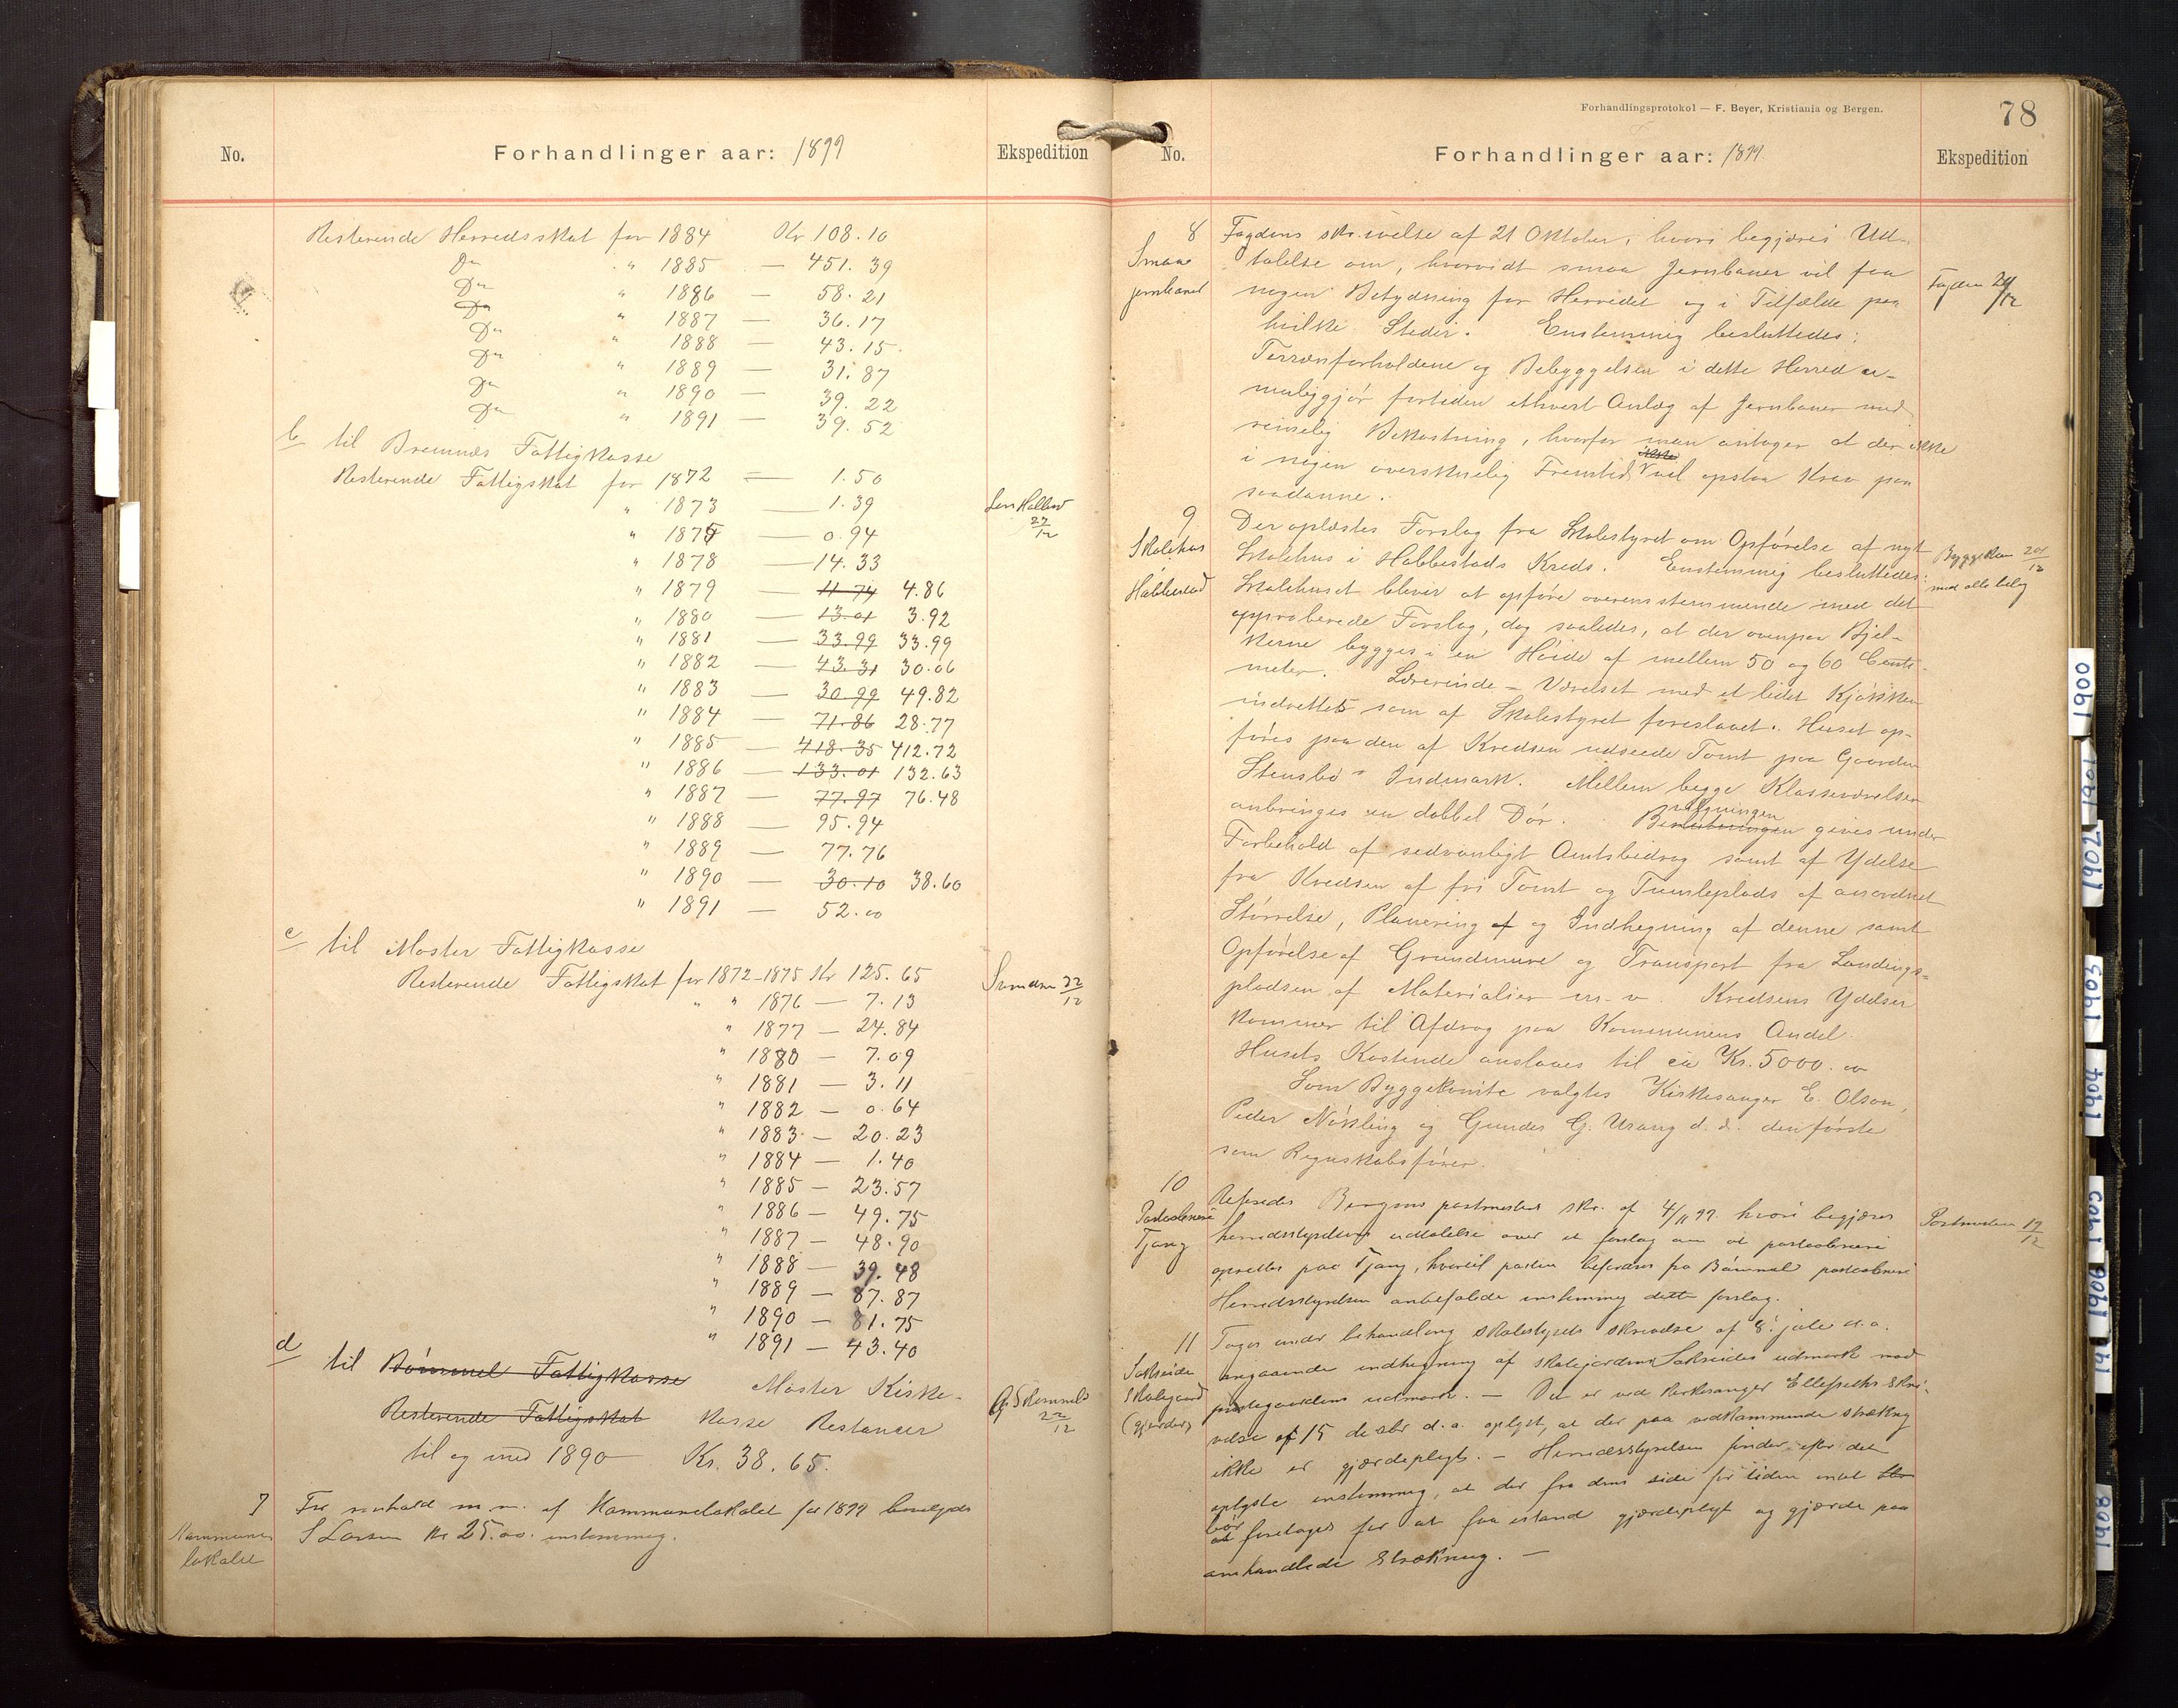 No.
Forhandlinger aar: 1899
Ekspedition
Resterende Herredsskat for 1884 Kr 108.10
Do " 1885 — 451.39
Do " 1886 — 58.21
Do " 1887 — 36.17
Do " 1888 — 43.15
Do " 1889 — 31.87
Do " 1890 — 39.22
Do " 1891 — 39.52
b til Bremnes Fattigkasse
Resterende Fattigskat for 1872 — 1.50
" 1873 — 1.39
" 1875 — 0.94
" 1878 — 14.33
" 1879 — 11.74 4.86
" 1880 — 13.01 3.92
" 1881 — 33.99 33.99
" 1882 — 43.31 30.06
" 1883 — 30.99 49.82
" 1884 — 71.86 28.77
" 1885 — 418.35 412.72
" 1886 — 133.01 132.63
" 1887 — 77.97 76.48
" 1888 — 95.94
" 1889 — 77.76
" 1890 — 30.10 38.60
" 1891 — 52.00
22/12
c til Moster Fattigkasse
Resterende Fattigskat for 1872–1875 Kr 125.65
" " 1876 — 7.13
" 1877 — 24.84
" 1880 — 7.09
" 1881 — 3.11
" 1882 — 0.64
" 1883 — 20.23
" 1884 — 1.40
" 1885 — 23.57
" 1886 — 49.75
" 1887 — 48.90
" 1888 — 39.48
" 1889 — 87.87
" 1890 — 81.75
" 1891 — 43.40
22/12
d til Bømmel Fattigkasse Moster Kirke-
Resterende Fattigskat kasse Restancer
til og med 1890 Kr. 38.65.
22/12
7 For renhold m.m. af Kommunelokalet for 1899 bevilgedes
S Larsen Kr 25.00. enstemmig.
Kommune
lokalet
Forhandlingsprotokol — F. Beyer, Kristiania og Bergen.
78
No.
Forhandlinger aar: 1899.
Ekspedition
8
Smaae
jernbaner
Fogdens skrivelse af 21 Oktober, hvori begjæres Ud-
talelse om, hvorvidt smaa Jernbaner vil faa
nogen Betydning for Herredet og i Tilfælde paa
hvilke Steder. Enstemmig besluttedes:
Terrænforholdene og Bebyggelsen i dette Herred u-
muliggjør fortiden ethvert Anlæg af Jernbaner med
rimelig Bekostning, hvorfor man antager at der ikke
i nogen overskuelig Fremtid vil opstaa Krav paa
saadanne.
Fogden 20/12
9
Skolehus
Habbestad
Der oplæstes Forslag fra Skolestyret om Opførelse af nyt
Skolehus i Habbestads Kreds. Enstemmig besluttedes:
Skolehuset bliver at opføre overensstemmende med det
approberede Forslag, dog saaledes, at der ovenpaa Bjel-
kerne bygges i en Høide af mellem 50 og 60 Centi-
meter. Lærerinde-Værelset med et lidet Kjøkken
indrettes som af Skolestyret foreslaaet. Huset op-
føres paa den af Kredsen udseede Tomt paa Gaarden
Stensbø's Indmark. Mellem begge Klasseværelser
anbringes en dobbel Dør. Beslutningen gives under
Forbehold af sedvanligt Amtsbidrag samt af Ydelse
fra Kredsen af fri Tomt og Tumleplads af anordnet
Størrelse, Planering af og Indhegning af denne samt
Opførelse af Grundmure og Transport fra Landings-
pladsen af Materialier m.v. Kredsens Ydelser
kommer til Afdrag paa Kommunens Andel.
Husets Kostende anslaaes til ca Kr. 5000.00
Som Byggekomite valgtes Kirkesanger E. Olson,
Peder Nøkling og Gunder G. Urang d.d. den første
som Regnskabsfører.
Byggekom 20/12
med alle bilag
10
Postaabneri
Tjong
Refereredes Bergens postmesters skr. af 4/11 99. hvori begjæres
herredsstyrelsens udtalelse over et forslag om at postaabneri
oprettes paa Tjong, hvortil posten befordres fra Bømmel postaabneri
Herredsstyrelsen anbefalede enstemmig dette forslag.
Postmesteren 19/12
11
Sakseide
Skolegaard
(gjerder)
Toges under behandling skolestyrets skrivelse af 8. juli d.a.
angaaende indhegning af skolejordens Sakseides udmark mod
prestegaardens udmark. — Det er ved kirkesanger Ellefsens skri-
velse af 15 decbr d.a. oplyst, at der paa vedkommende strækning
ikke er gjærdepligt. — Herredsstyrelsen finder efter det
oplyste enstemmig, at der fra dens side for tiden intet
bør foretages for at faa istand gjærdepligt og gjærde paa
omhandlede strækning. —
1900
1901
1902
1903
1904
1905
1906
1908